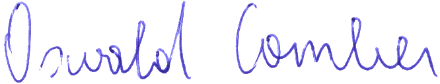 Oswald Comber